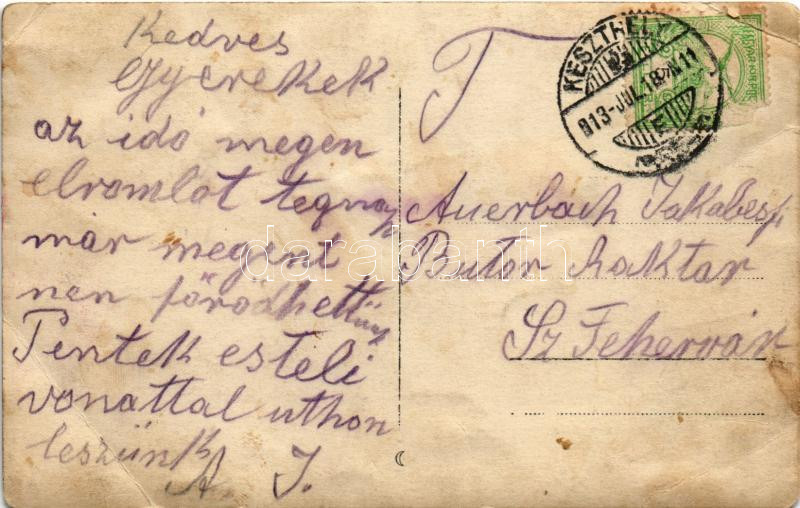 Kedves
Gyerekek
az idő megen
elromlot tegnap
már megint
nen förödhettünk
Pentek esteli
vonattal uthon
leszünk
A J.
T
KESZTHELY
913-JUL.18 N11
Auerbach Jakab
Butor Raktar
Sz Fehervár
darabanth